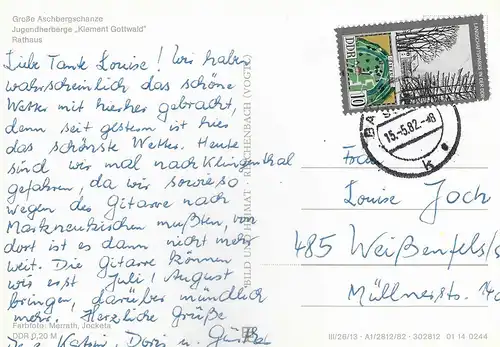 Große Aschbergschanze
Jugendherberge „Klement Gottwald“
Rathaus
Liebe Tante Louise! Wir haben
wahrscheinlich das schöne
Wetter mit hierher gebracht,
denn seit gestern ist hier
das schönste Wetter. Heute
sind wir mal nach Klingenthal
gefahren, da wir sowieso
wegen der Gitarre nach
Markneukirchen mußten, von
dort ist es dann nicht mehr
weit. Die Gitarre können
wir erst Juli/August
bringen, darüber mündlich
mehr. Herzliche Grüße
Katrin, Doris u.
Farbfoto: Meirath, Jocketa
DDR 0,20 M
BILD UND HEIMAT · REICHENBACH (VOGTL)
DDR
10
15.-5.82.-18
k
Frau
Louise Joch
485 Weißenfels/S
Müllnerstr.
III/26/13 · A1/2812/82 · 302812 01 14 0244